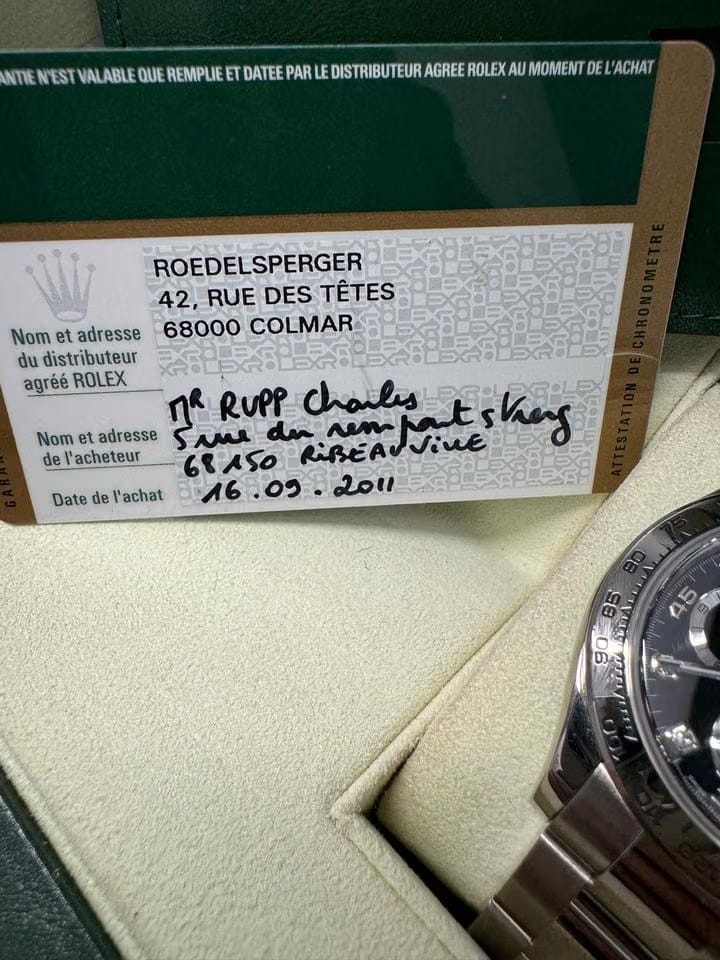 ANTIE N'EST VALABLE QUE REMPLIE ET DATEE PAR LE DISTRIBUTEUR AGREE ROLEX AU MOMENT DE L'ACHAT
ROEDELSPERGER
42, RUE DES TÊTES
68000 COLMAR
Nom et adresse
du distributeur
agréé ROLEX
Nom et adresse
de l'acheteur
MR RUPP Charles
5 rue du rempart
68150 RIBEAUVILLE
Date de l'achat
16.09.2011
ATTESTATION DE CHRONOMETRE
GARAN
75
80
85
90
100
45